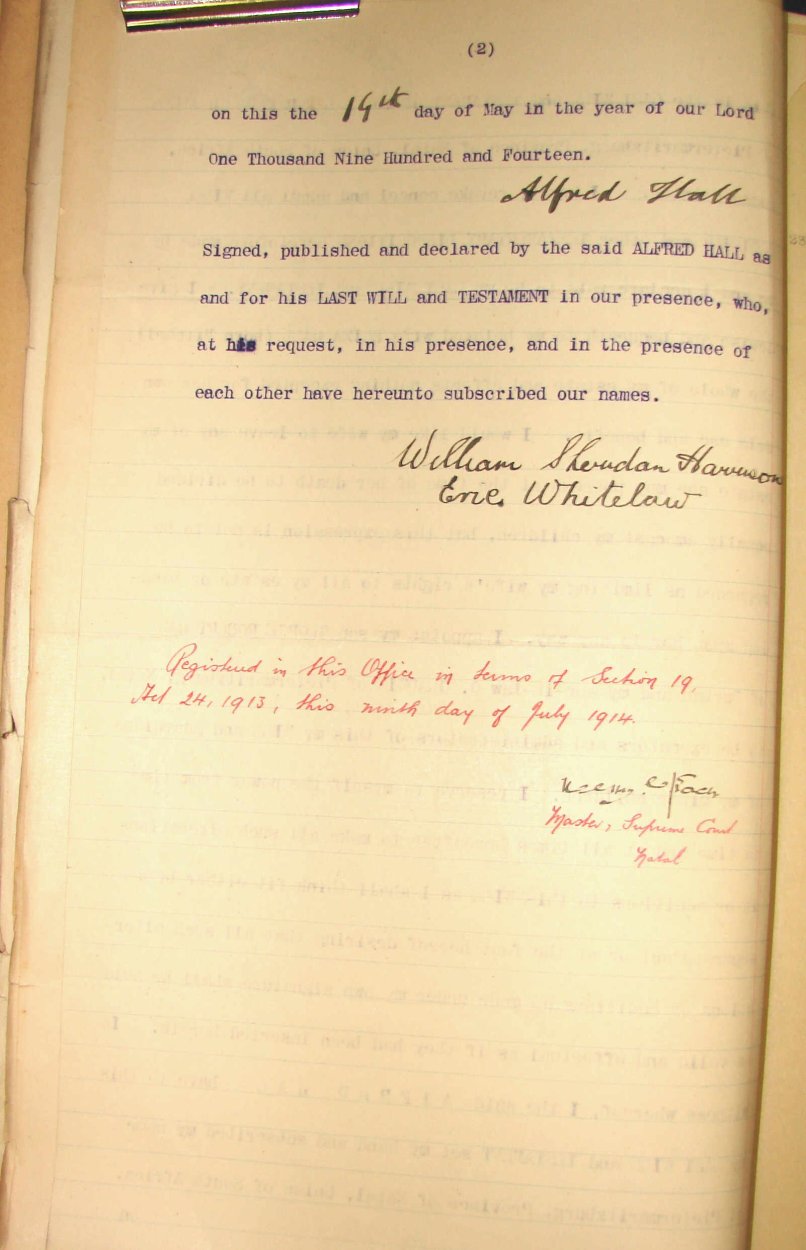 (2)
on this the 19th day of May in the year of our Lord
One Thousand Nine Hundred and Fourteen.
Alfred Hall
Signed, published and declared by the said ALFRED HALL as
and for his LAST WILL and TESTAMENT in our presence, who,
at his request, in his presence, and in the presence of
each other have hereunto subscribed our names.
William Sheridan Harrison
Eric Whitelaw
Registered in this Office in terms of Section 19,
Act 24, 1913, this ninth day of July 1914.
Master, Supreme Court
Natal